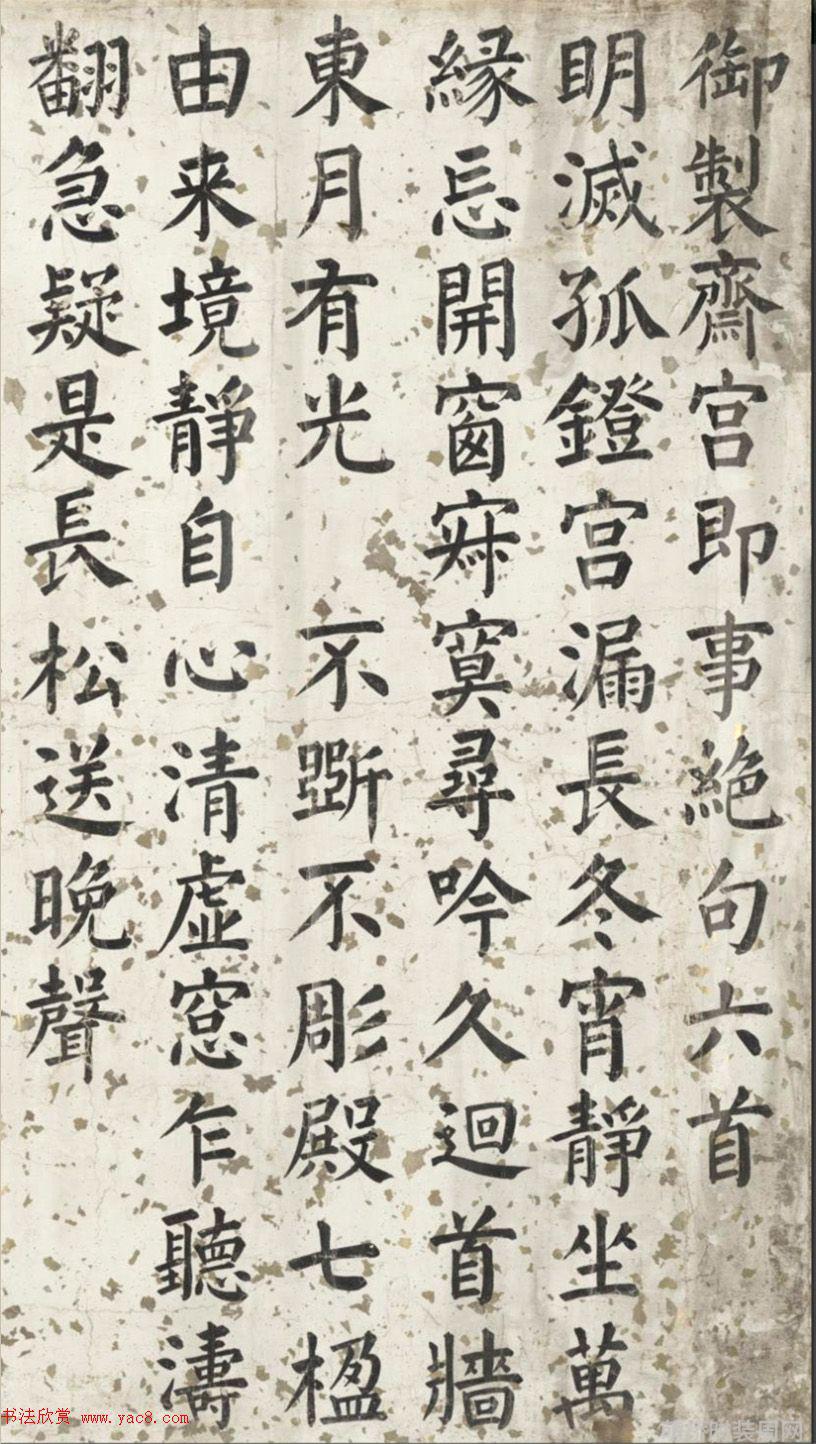 御製齋宫即事絶句六首
明滅孤鐙宫漏長冬宵靜坐萬
緣忘開窗寂寞尋吟久迴首牆
東月有光　不斵不彫殿七楹
由来境靜自心清虚窓乍聽濤
翻急疑是長松送晩聲
书法欣赏 www.yac8.com